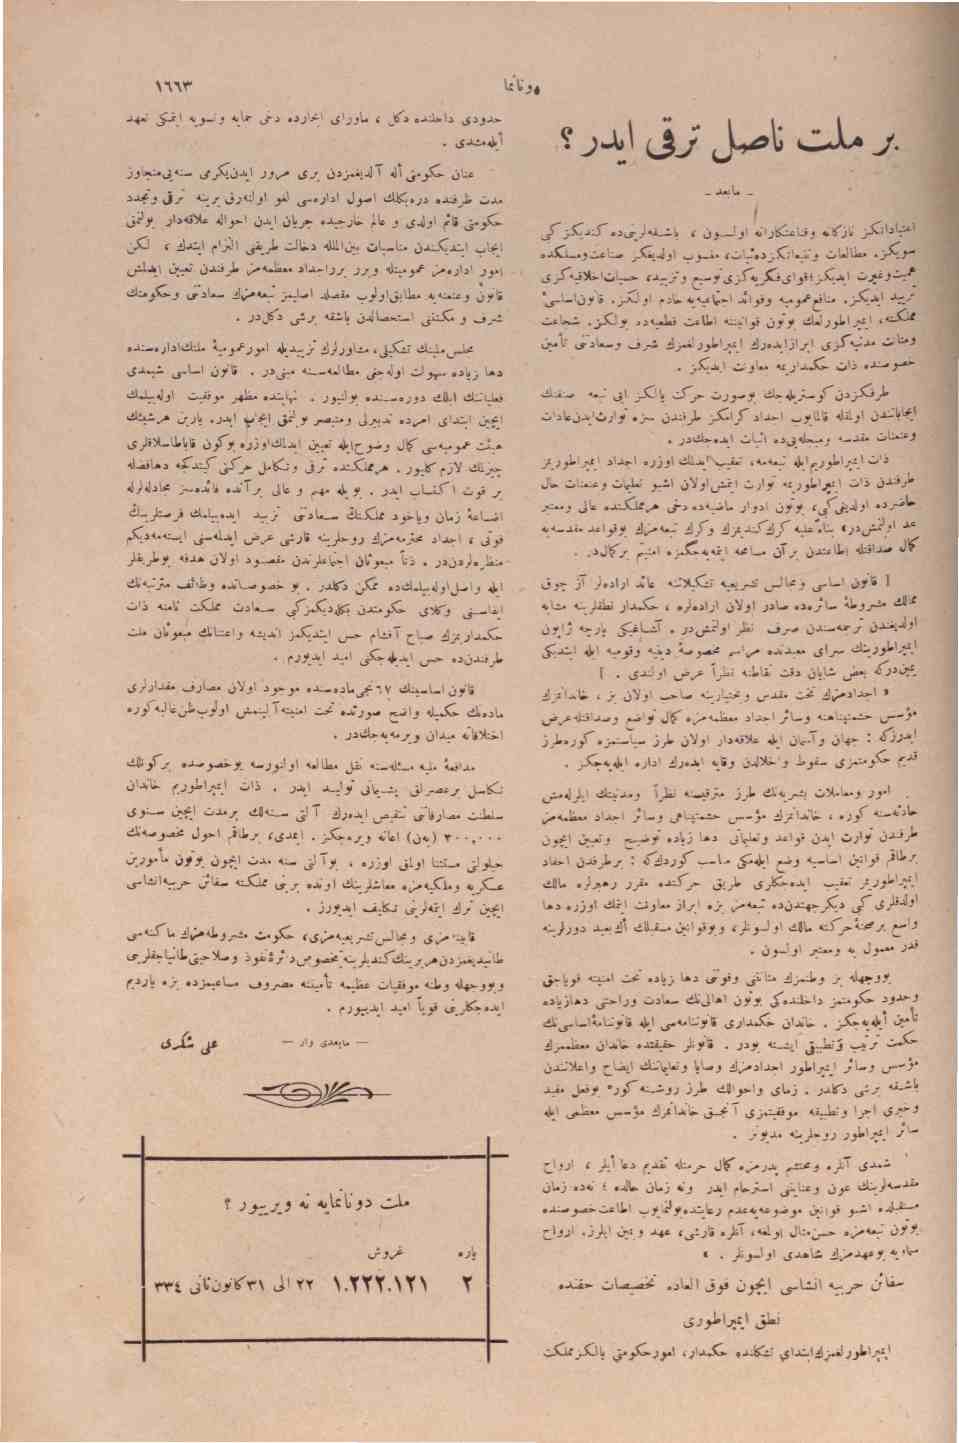 ١٦٦٣
دونانما
بر ملت ناصل ترقی ایدر ؟
ـ مابعد ـ
اعتیاداتکز نازکانه وقناعتکارانه اولسون ، باشقه‌لرینی‌ده کندیکز کبی
سویکز. مطالعات وتتبعاتکزده‌ثبات، منسوب اولدیغکز صناعت‌ومسلکده
همیت‌وغیرت ایدیکز؛قوای‌فکریه‌کزی‌توسیع وتزیید، حسیات‌اخلاقیه‌کزی
تزیید ایدیکز. منافع‌عمومیه وفوائد اجتماعیه‌یه‌خادم اولکز. قانون‌اساسیٔ
مملکته، ایمپراطورلغک بوتون قوانیننه اطاعت قطعیه‌ده بولنکز. شجاعت
ومتانت مدنیه‌کزی ابرازایده‌رك ایمپراطورلغمزك شرف وسعادتنی تأمین
خصوصنده ذات حکمداریمه معاونت ایدیکز.
طرفکزدن کوستریله‌جك بوصورت حرکت یالکز ایی تبعه صنفنك
ایجاباتندن اولمقله قالمایوب اجداد کرامکز طرفندن سزه توارث‌ایدن‌عادات
وعنعنات مقدسه ومبجله‌یی‌ده اثبات ایده‌جك‌در.
ذات ایمپراطوریم‌ایله تبعه‌مه، تعقیب‌ایدلك اوزره اجداد ایمپراطوریمز
طرفندن ذات ایمپراطوریمه توارث ایتمش‌اولان اشبو تعلیمات وعنعنات حال
حاضرده اولدیغی‌کبی، بوتون ادوار ماضیه‌ده دخی هرمملکتده عالی ومعتبر
عد اولنمش‌در؛ بناءًعلیه کرك‌کندیمزك وکرك تبعه‌مزك بوقواعد مقدسه‌یه
کمال صداقتله اطاعتدن برآن مسامحه ایتمه‌یه‌جکمزه امنیتم برکمال‌در.
[ قانون اساسی ومجالس تشریعیه تشکیلاتنه عائد اراده‌لر آز چوق
ممالك مشروطهٔ سائره‌ده صادر اولان اراده‌لره ، حکمدار نطقلرینه مشابه
اولدیغندن ترجمه‌سندن صرف نظر اولنمش‌در. آشاغیکی پارچه ژاپون
ایمپراطورینك سرای معبدنده مراسم مخصوصهٔ دینیه وقومیه ایله ایتدیکی
یمین‌درکه بعض شایان دقت نقاطنه نظراً عرض اولندی . ]
« اجدادمزك تخت مقدس وبختیارینه صاحب اولان بز ، خاندانمزك
مؤسس حشمتپناهنه وسائر اجداد معظمه‌مزه کمال تواضع وصداقتله‌عرض
ایدرزکه : جهان وآسمان ایله علاقه‌دار اولان طرز سیاستمزه کوره‌طرز
قدیم حکومتمزی سقوط وخلالدن وقایه ایده‌رك اداره ایله‌یه‌جکز .
امور ومعاملات بشریه‌نك طرز مترقیسنه نظراً ومدنیتك ایلرله‌مش
حادثه‌سنه کوره، خاندانمزك مؤسس حشمتپناهی وسائر اجداد معظمه‌مز
طرفندن توارث ایدن قواعد وتعلیماتی دها زیاده توضیح وتعیین ایچون
برطاقم قوانین اساسیه وضع ایله‌مکی مناسب کوردك‌که : برطرفدن احفاد
ایمپراطوریمز تعقیب ایده‌جکلری طریق حرکتده مقرر رهبرلره مالك
اولدقلری کبی دیکرجهتدن‌ده تبعه‌مز بزه ابراز معاونت ایتمك اوزره دها
واسع برصحنهٔ‌حرکته مالك اولسونلر، وبوقوانین مستقبلك أك‌بعید دورلرینه
قدر معمول به ومعتبر اولسون .
بووجهله بز وطنمزك متانتنی وقوتنی دها زیاده تحت امنیته قویاجق
وحدود حکومتمز داخلنده‌کی بوتون اهالی‌نك سعادت وراحتنی دهازیاده
تأمین أیله‌یه‌جکز . خاندان حکمداری قانوننامه‌سی ایله قانوننامهٔ‌اساسی‌نك
حکمت ترتیب وتطبیقی ایشته بودر. قانونلر حقیقتده خاندان معظممزك
مؤسس وسائر ایمپراطور اجدادمزك وصایا وتعلیماتنك ایضاح واعلانندن
باشقه برشی دکلدر. زمانی واحوالك طرز روشنه کوره بوفعل مفید
وخیری اجرا وتطبیقه موفقیتمزی آنجق خاندانمزك مؤسس معظمی ایله
سائر ایمپراطور روحلرینه مدیونز .
شمدی آنلره ومحتشم پدرمزه کمال حرمتله تقدیم دعا أیلر ، ارواح
مقدسه‌لرینك عون وعنایتنی استرحام ایدر ونه زمان حالده ؛ نه‌ده زمان
مستقبلده اشبو قوانین موضوعه‌یه‌عدم رعایتده‌بولنمایوب اطاعت‌خصوصنده
بوتون تبعه‌مزه حسن‌مثال اولمغه، آنلره قارشی، عهد ویمین ایلرز. ارواح
سماویه بوعهدمزك شاهدی اولسونلر . »
سفائن حربیه انشاسی ایچون فوق العاده تخصیصات حقنده
نطق ایمپراطوری
ایمپراطورلغمزك‌ابتدای تشکلنده حکمدار، امورحکومتی یالکزمملکت
حدودی داخلنده دکل ، ماورای ابحارده دخی حمایه وتسویه ایتمکی تعهد
أیله‌مشدی .
عنان حکومتی أله آلدیغمزدن بری مرور ایدن‌یکرمی سنه‌یی‌متجاوز
مدت ظرفنده دره‌بکلك اصول اداره‌سی لغو اولنه‌رق‌یرینه ترقی وتجدد
حکومتی قائم اولدی و عالم خارجیده جریان ایدن احواله علاقه‌دار بولنمق
ایجاب ایتدیکندن مناسبات بین‌الملله دخالت طریقنی التزام ایتدك ، لکن
امور اداره‌مز عمومیتله وبرر برراجداد معظمه‌مز طرفندن تعیین ایدلمش
قانون وعنعنه‌یه مطابق‌اولوب مقصد اصلیمز تبعه‌مزك سعادتنی وحکومتك
شرف و مکنتنی استحصالدن باشقه برشی دکل‌در .
مجلس ملینك تشکیلی، مشاورلرك تزییدیله امورعمومیهٔ ملتك‌اداره‌سنده
دها زیاده سهولت اوله‌جغی مطالعه‌سنه مبنی‌در. قانون اساسی شیمدی
فعلیاتنك ایلك دوره‌سنده بولنیور. نهایتنده مظهر موفقیت اوله‌بیلمك
ایچین ابتدای امرده تدبیرلی ومتبصر بولنمق ایجاب ایدر. یارین هرشیئك
هیئت عمومیه‌سی کمال وضوح‌ایله تعیین ایدلمك‌اوزره بوکون قاباطاسلاقلری
چیزیلمك لازم کلیور. هرمملکتده ترقی وتکامل حرکتی کیتدکجه دهافضله
بر قوت اکتساب ایدر . بویله مهم و عالی برآنده فائده‌سز مجادله‌لرله
اضاعهٔ زمان ویاخود مملکتك سعادتنی تزیید ایده‌بیلمك فرصتلرینك
فوتی ، اجداد محترمه‌مزك روحلرینه قارشی عرض ایدلمسنی ایسته‌مه‌دیکم
منظره‌لردن‌در . ذاتاً مبعوثان اجتماعلرندن مقصود اولان هدفه بوطریقلر
ایله واصل‌اوله‌بیلمك‌ده ممکن دکلدر. بو خصوصاتده وظائف مترتبه‌نك
ایفاسنی وکلای حکومتدن بکله‌دیکمزکبی سعادت مملکت نامنه ذات
حکمداریمزك صباح آقشام حس ایتدیکمز اندیشه واعتنانك مبعوثان ملت
طرفندن‌ده حس ایدیله‌جکنی امید ایدیورم .
قانون اساسینك ٦٧نجی‌ماده‌سنده موجود اولان مصارف مقدارلری
ماده‌نك حکمیله واضح صورتده تحت امنیته‌آلینمش اولوب‌ظن‌عالیه‌کوره
اختلافاته میدان ویرمه‌یه‌جك‌در .
مدافعهٔ ملیه مسئله‌سنه نقل مطالعه اولنورسه بوخصوصده برکونلك
تکاسل برعصرلق پشیمانی تولید ایدر. ذات ایمپراطوریم خاندان
سلطنت مصارفاتنی تنقیص ایده‌رك آلتی سنه‌لك برمدت ایچین سنوی
٣٠٠,٠٠٠ (یه‌ن) اعانه ویره‌جکز . ایمدی، برطاقم احول مخصوصه‌نك
حیلولتی مستثنا اولمق اوزره ، بوآلتی سنه مدت ایچون بوتون مأمورین
عسکریه وملکیه‌مزه معاشلرینك اونده برینی مملکته سفائن حربیه‌انشاسی
ایچین ترك ایتمه‌لرینی تکلیف ایدییورز .
قابینه مزی ومجالس‌تشریعیه‌مزی، حکومت مشروطه‌مزك ماکنه‌سی
طانیدیغمزدن‌هربرینك‌کندیلرینه‌مخصوص‌دائرهٔ‌نفوذ وصلاحیتی‌طانیاجقلرینی
وبووجهله وطنه موفقیات عظیمه تأمیننه مصروف مساعیمزده بزه یاردیم
ایده‌جکلرینی قویاً امید ایدییورم .
— مابعدی وار —
علی شکری
ملت دونانمایه نه ویرییور ؟
پاره
غروش
٢
١.٢٢٢.١٢١
٢٢ الی ٣١ کانون‌ثانی ٣٣٤